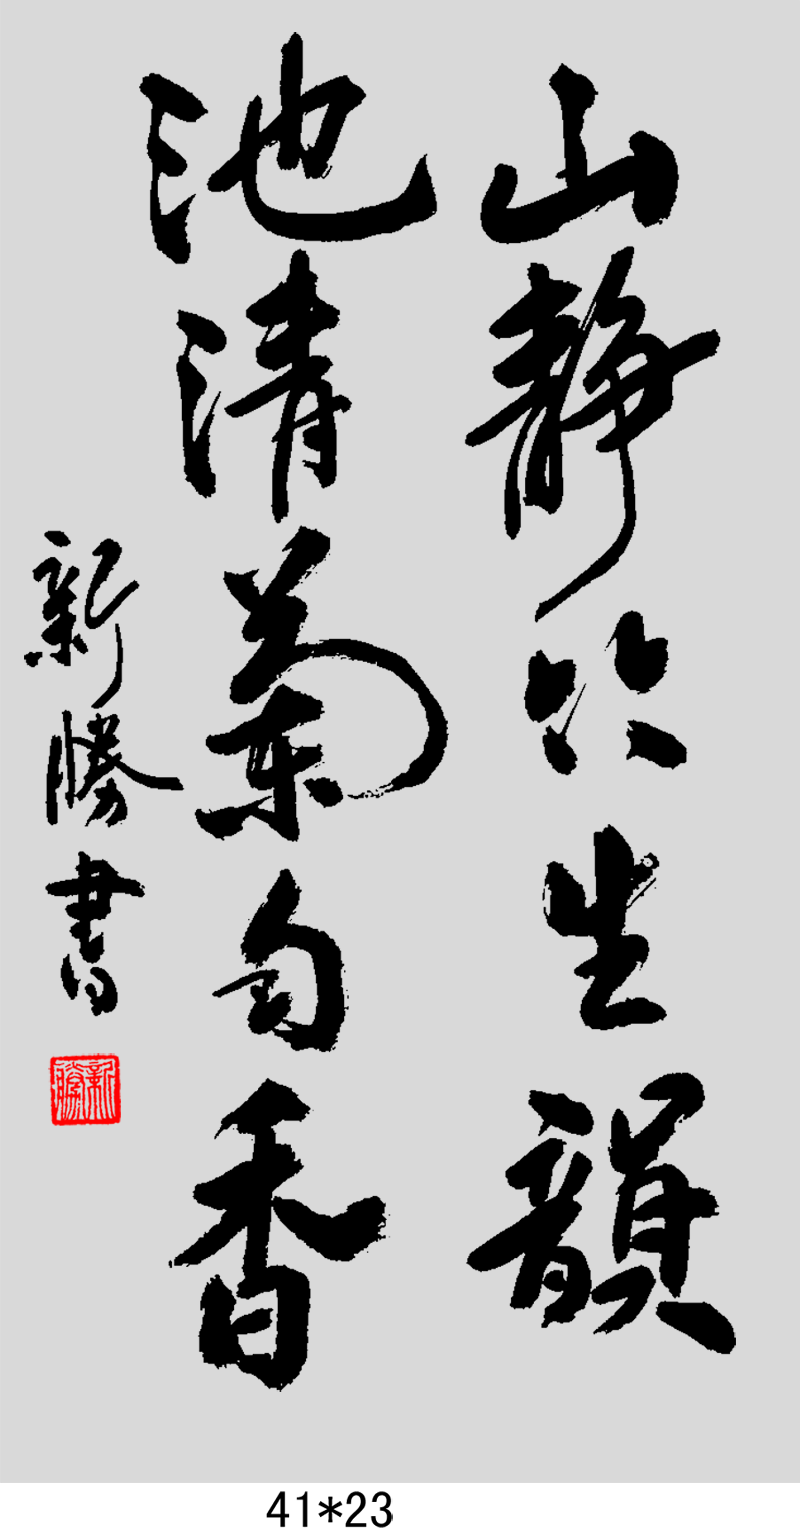 山靜生韻
池清蘭自香
新勝書
新勝
41*23